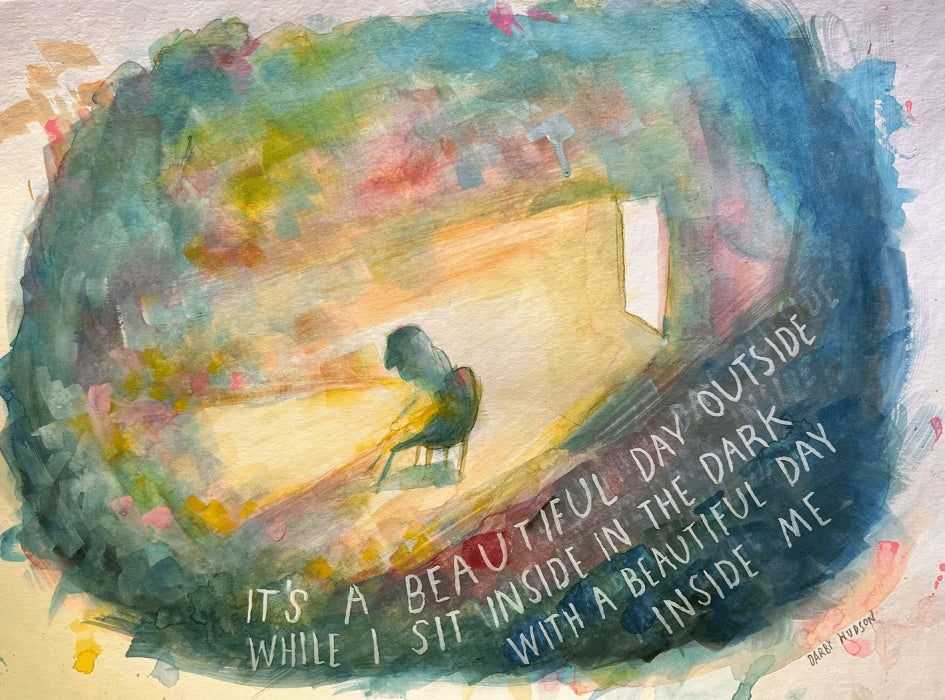 IT'S A BEAUTIFUL DAY OUTSIDE
WHILE I SIT INSIDE IN THE DARK
WITH A BEAUTIFUL DAY
INSIDE ME
DARBY HUDSON